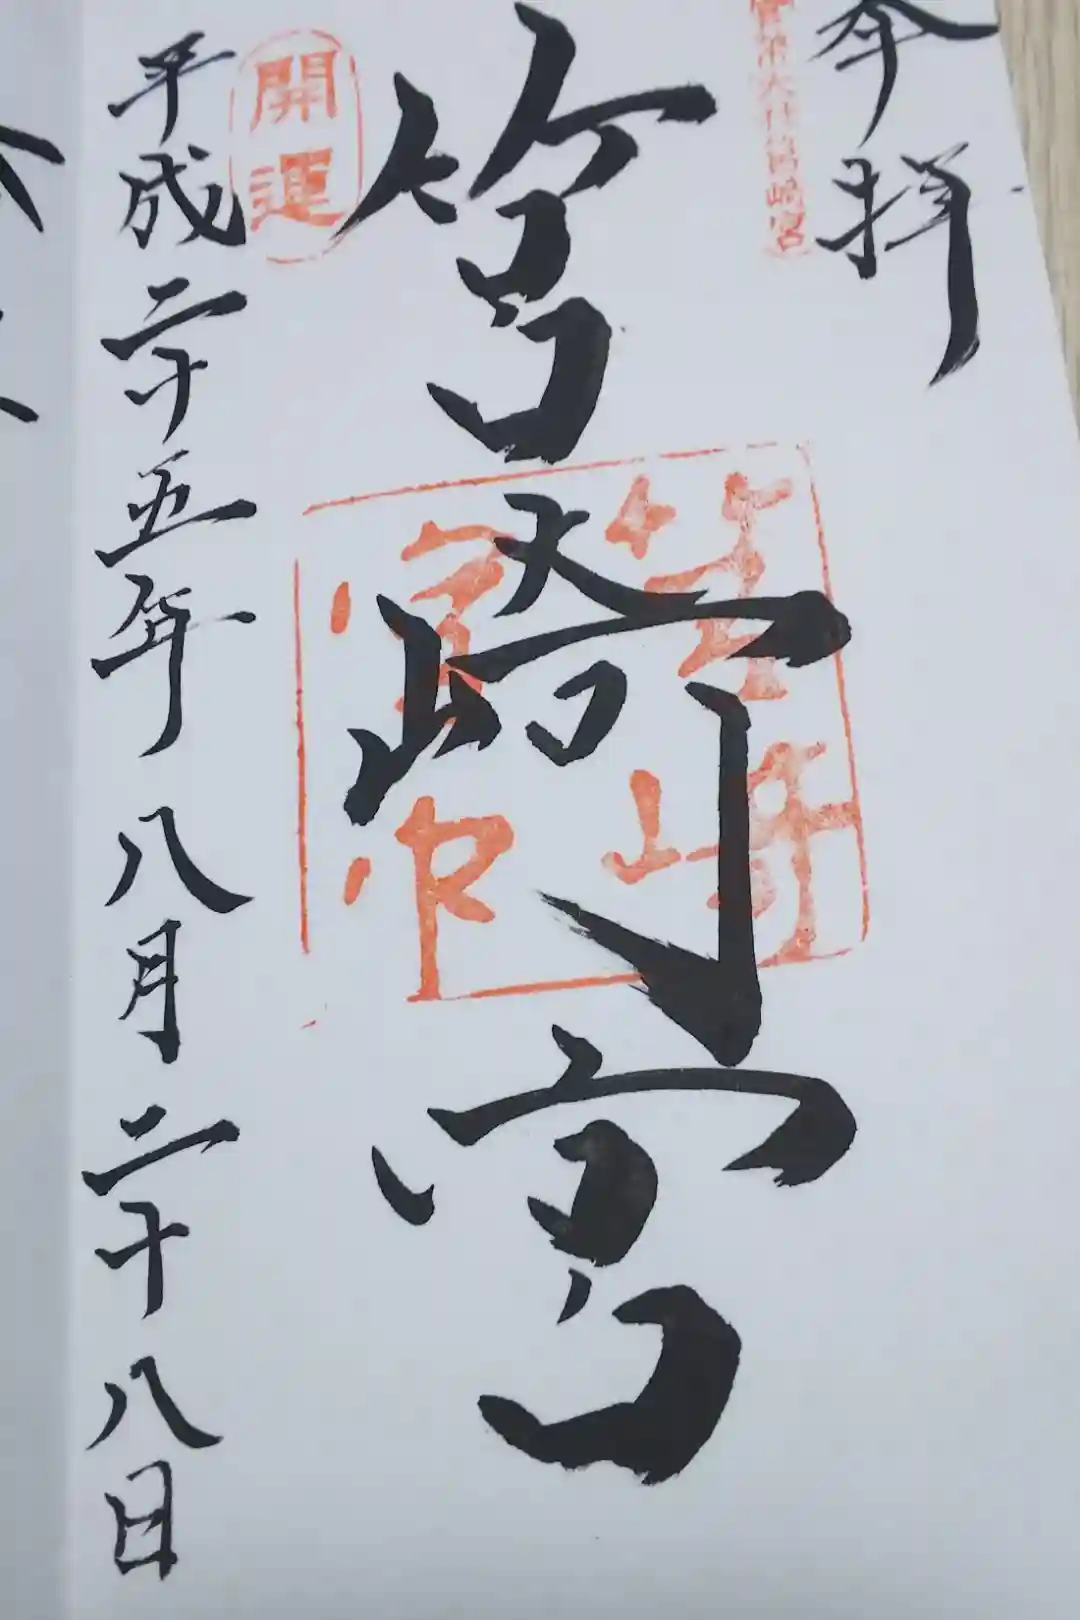 奉拝
官幣大社筥崎宮
筥崎宮
筥崎
宮印
開運
平成二十五年八月二十八日